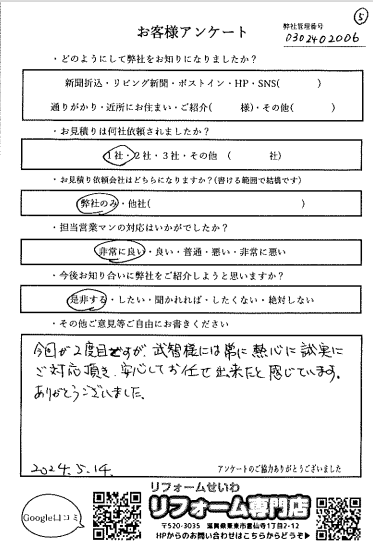 ⑤
お客様アンケート
弊社管理番号
0302402006
・どのようにして弊社をお知りになりましたか？
新聞折込・リビング新聞・ポストイン・HP・SNS(　　　)
通りがかり・近所にお住まい・ご紹介(　　　様)・その他(　　　)
・お見積りは何社依頼されましたか？
1社・2社・3社・その他　(　　　社)
・お見積り依頼会社はどちらになりますか？(書ける範囲で結構です)
弊社のみ・他社(　　　)
・担当営業マンの対応はいかがでしたか？
非常に良い・良い・普通・悪い・非常に悪い
・今後お知り合いに弊社をご紹介しようと思いますか？
是非する・したい・聞かれれば・したくない・絶対しない
・その他ご意見等ご自由にお書きください
今回が2度目ですが、武智様には常に熱心に誠実に
ご対応頂き、安心してお任せ出来たと感じています。
ありがとうございました。
2024.5.14.
アンケートのご協力ありがとうございました
Google口コミ
リフォームせいわ
リフォーム専門店
〒520-3035　滋賀県栗東市霊仙寺1丁目2-12
HPからのお問い合わせはこちらからどうぞ▶